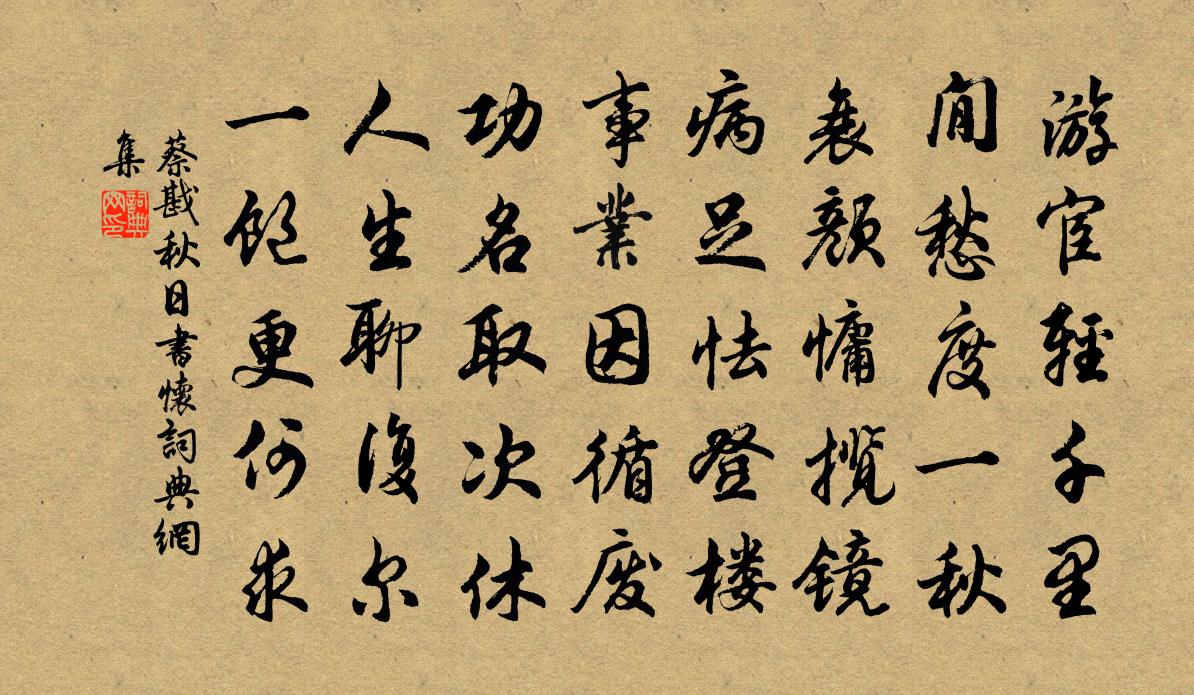 游宦輕千里
閒愁度一秋
衰顏慵揽镜
病足怯登楼
事業因循废
功名取次休
人生聊復尔
一飽更何求
蔡戡秋日書懷詞典網
集
詞典
网印